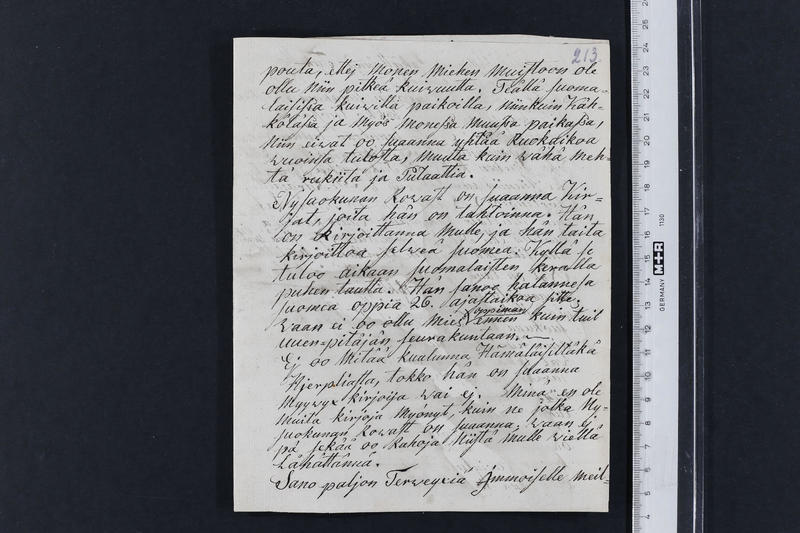 213.
pouta, ettej monen miehen muistoon ole
ollu niin pitkeä kuiwuutta. Täällä suoma-
laisissa kuiwilla paikoilla, niinkuin Käh-
kölässä ja myös monessa muussa paikassa,
niin eiwat oo saaanna yhtää Ruokaikoa
wuoissa tulotta, muuta kuin wähä meh-
tä reikiitä ja
Nysuokunan Rowasti on saaanna Kir-
jat, joita hän on tahtoinna. Hän
on kirjoittanna mulle, ja hän taita
kirjoittoa selweä suomea. Kyllä se
tuloo aikaan suomalaisten keralla
puhen kautta. Hän sanoo halannesa
suomea oppia 26. ajastaikoa sitte,
Waan ei oo ollu mies oppimaan ennen kuin tuli
uuen-pitäjän seurakuntaan.
Ej oo mitää kuulunna Hämäläiseltäkä
Hjerpliasta, tokko hän on saaanna
myywyx kirjoija wai ej. Minä en ole
muita kirjoja myönyt, kuin ne jotka Ny-
suokunan Rowasti on saaanna, waan ej
pä sekää oo Rahoja niistä mulle wiellä
Lähättännä.
Sano paljon Terweyxiä Immoiselle meil-